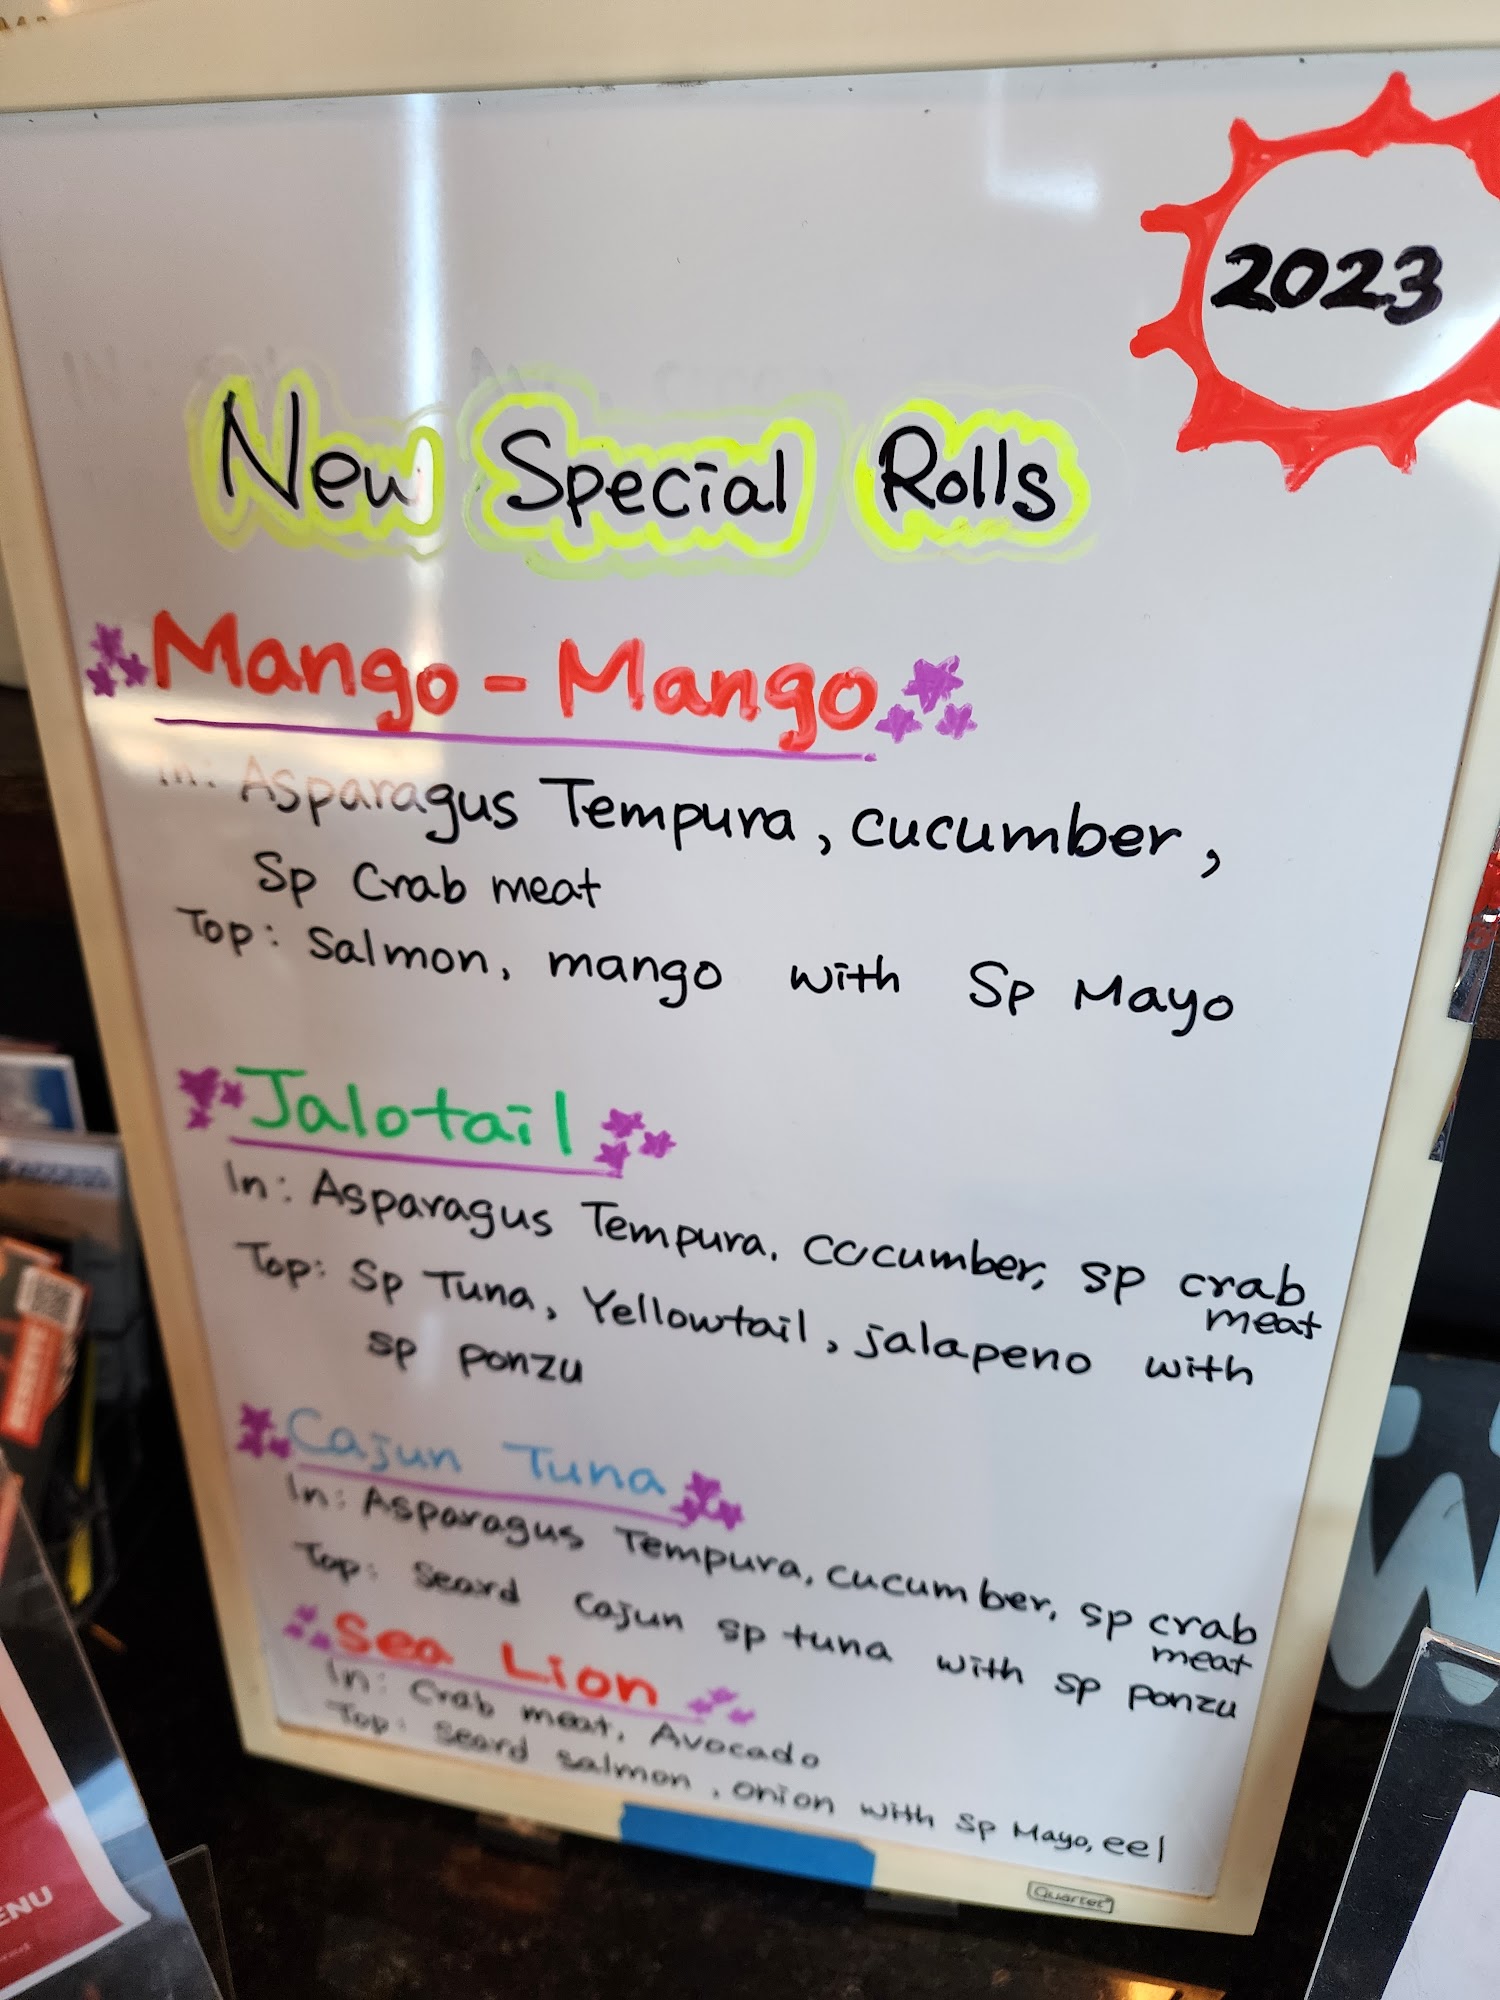 2023
New Special Rolls
Mango - Mango
In: Asparagus Tempura, cucumber,
Sp Crab meat
Top: Salmon, mango with Sp Mayo
Jalotail
In: Asparagus Tempura, cucumber, sp crab
meat
Top: Sp Tuna, Yellowtail, jalapeno with
sp ponzu
Cajun Tuna
In: Asparagus Tempura, cucumber, sp crab
meat
Top: Seard Cajun sp tuna with sp ponzu
Sea Lion
In: Crab meat, Avocado
Top: Seard salmon, onion with sp Mayo, eel
Quartet
ENU